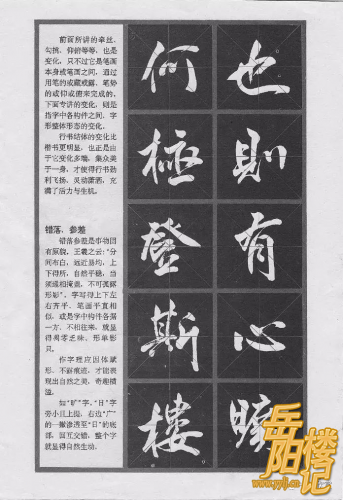 前面所讲的牵丝、
勾挑、仰俯等等,也是
变化,只不过它是笔画
本身或笔画之间,通过
用笔的或藏或露、笔势
的或仰或俯来完成的,
下面专讲的变化,则是
指字中各构件之间、字
形整体形态的变化。
行书结体的变化比
楷书更明显,也正是由
于它变化多端,集众美
于一身,才使得行书劲
利飞扬、灵动潇洒,充
满了活力与生机。
错落、参差
错落参差是事物固
有原貌,王羲之云:“分
间布白,远近易均,上
下得所,自然平稳,当
须递相掩盖,不可孤露
形影”。字写得上下左
右齐平,笔画平直相
似,或是字中构件各据
一方,不相往来,就显
得凋零乏味、形单影
只。
作字理应因体赋
形,不露痕迹,才能表
现出自然之美,奇趣横
溢。
如“旷”字,“日”字
旁小且上提,右边“广”
的一撇渗透至“日”的底
部,回互交错,整个字
就显得自然生动。
也則有心曠
何極登斯樓
岳阳楼记
www.yylj.cn